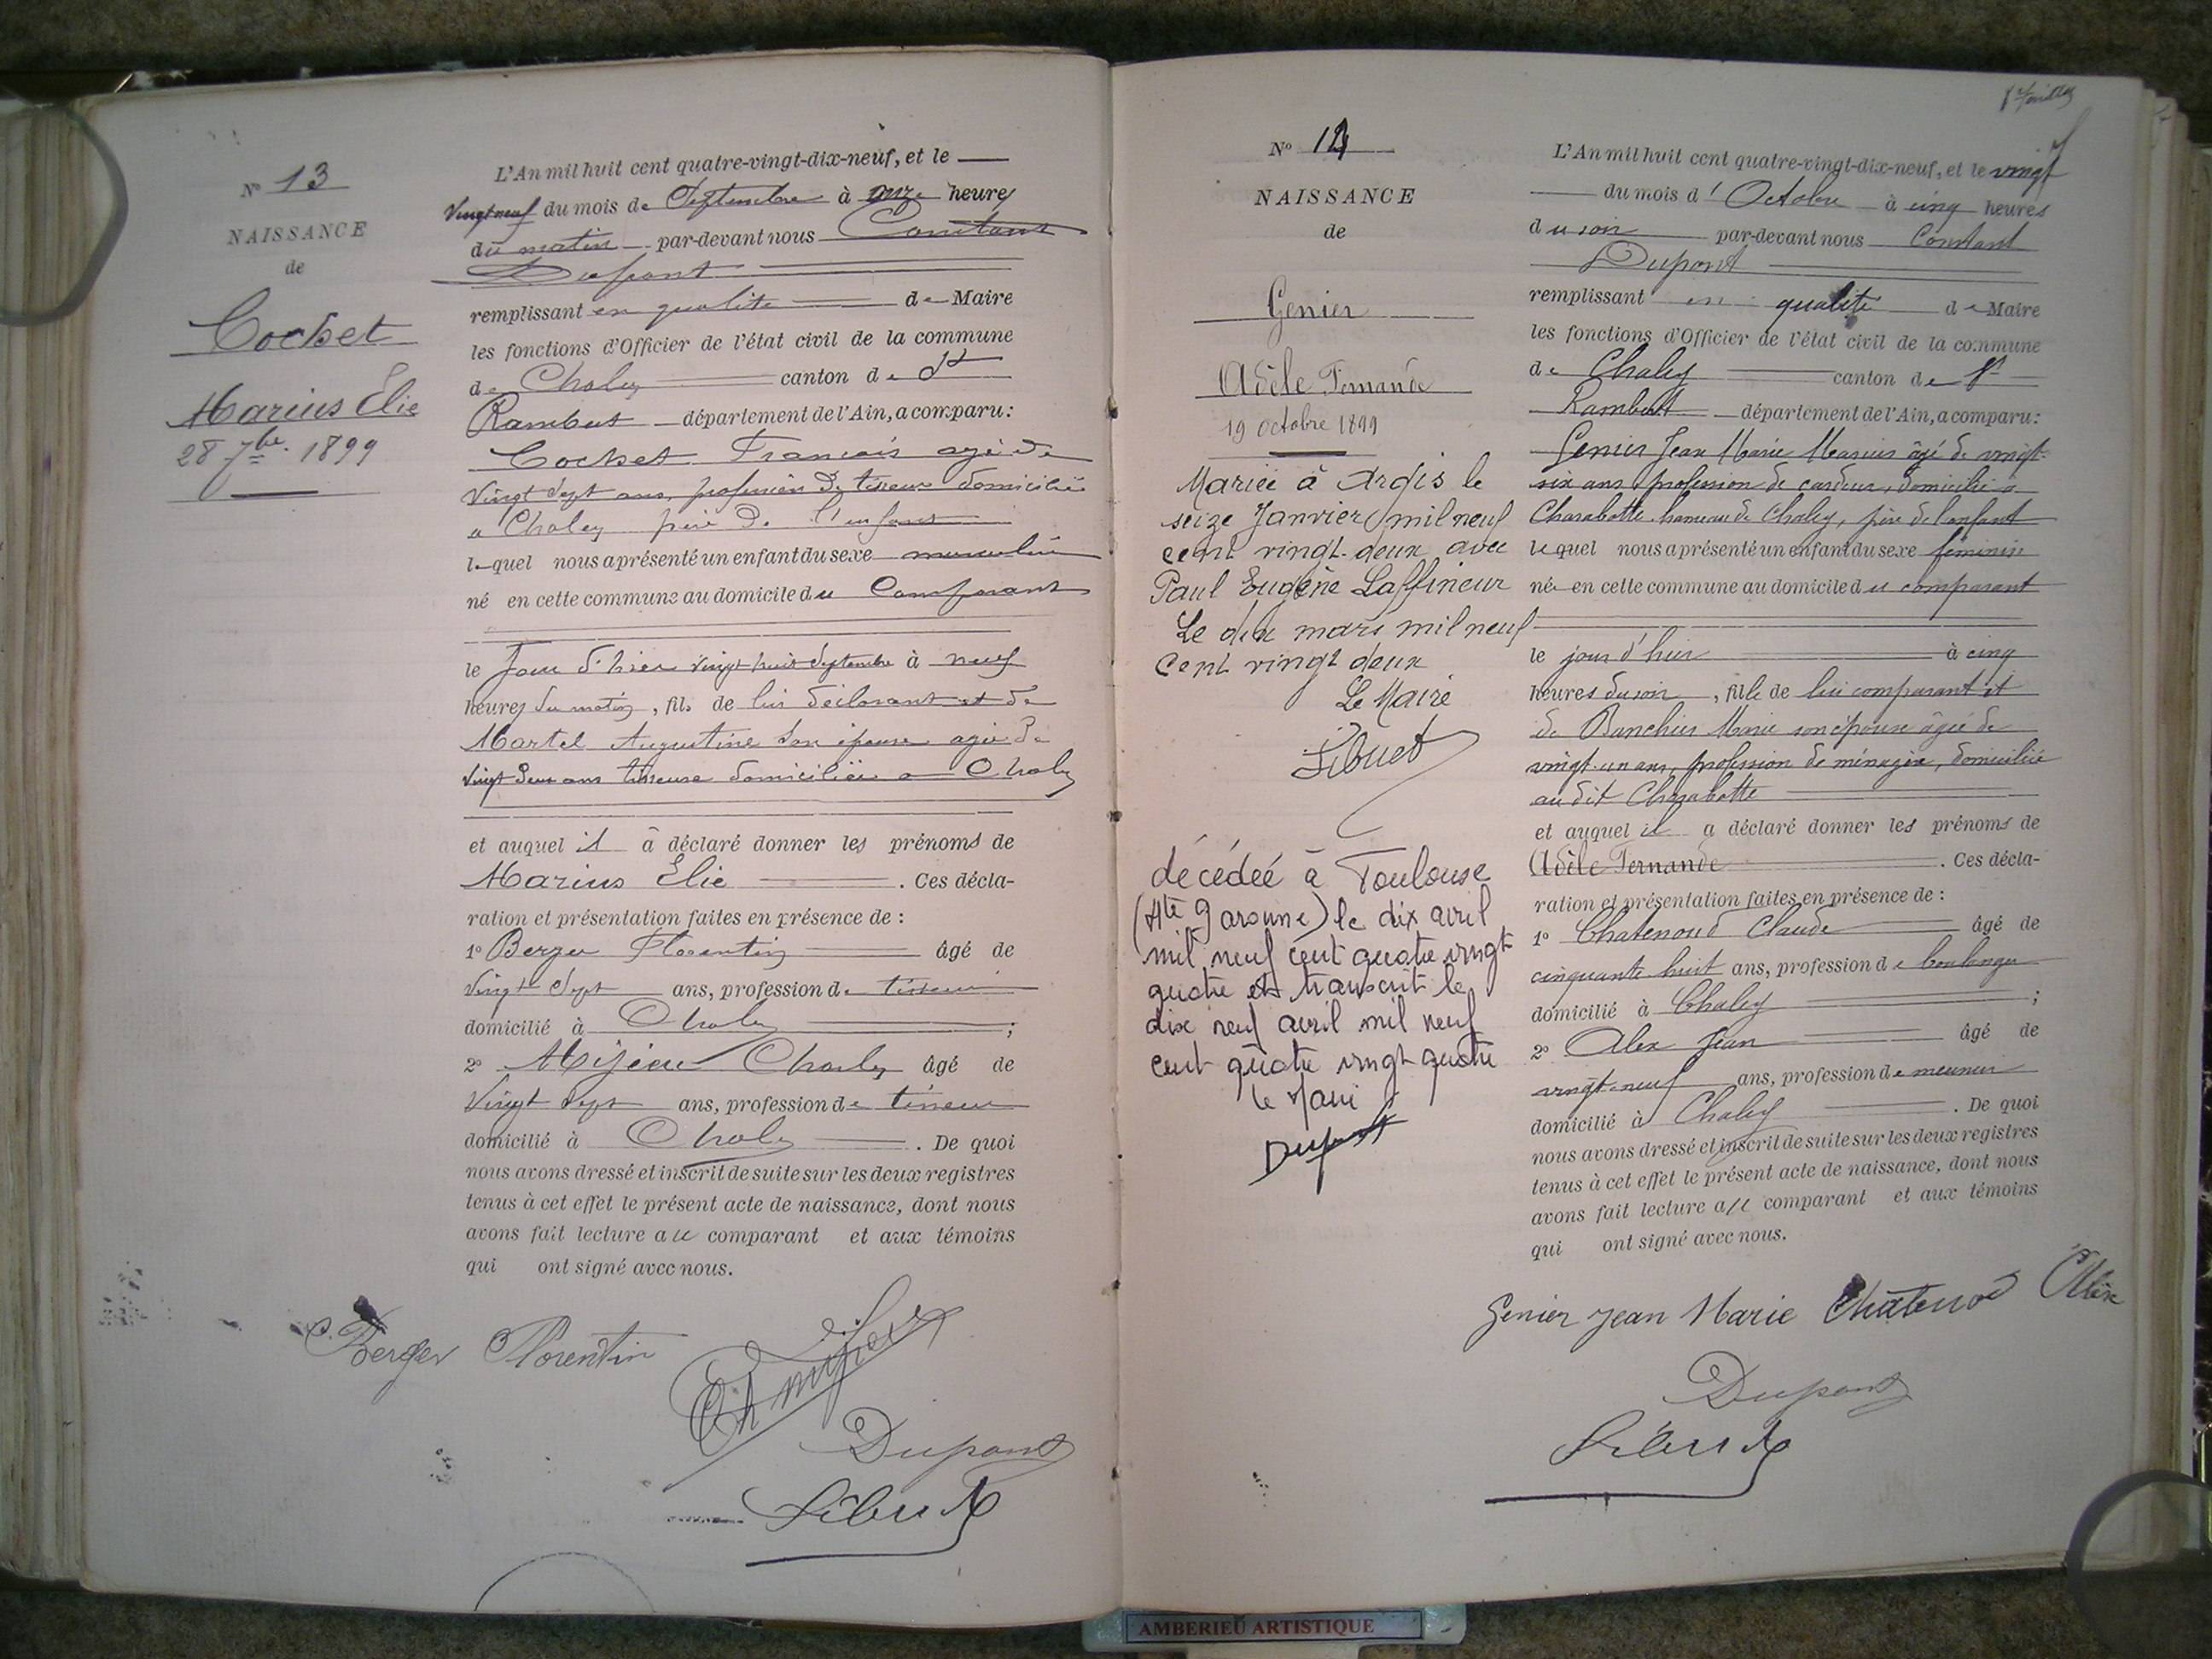 N° 13
NAISSANCE
de
Cochet
Marius Élie
28 7bre 1899
L'An mil huit cent quatre-vingt-dix-neuf, et le
vingt neuf du mois de Septembre à onze heures
du matin par-devant nous Constant
Dupont
remplissant en qualite de Maire
les fonctions d'Officier de l'état civil de la commune
de Chaley canton de St
Rambert département de l'Ain, a comparu:
Cochet Francois agé de
vingt sept ans, profession de tisseur domicilié
a Chaley père de l'enfant
lequel nous a présenté un enfant du sexe masculin
né en cette commune au domicile du Comparant
le Jour d'hier vingt huit Septembre à neuf
heures du matin, fils de lui déclarant et de
Martel Augustine son épouse agée de
vingt deux ans tisseuse domiciliée a Chaley
et auquel il a déclaré donner les prénoms de
Marius Elie . Ces décla-
ration et présentation faites en présence de :
1° Berger Florentin âgé de
vingt sept ans, profession de tisseur
domicilié à Chaley ;
2° Mijieu Charles âgé de
Vingt sept ans, profession de tisseur
domicilié à Chaley . De quoi
nous avons dressé et inscrit de suite sur les deux registres
tenus à cet effet le présent acte de naissance, dont nous
avons fait lecture au comparant et aux témoins
qui ont signé avec nous.
Berger Florentin
Dupont
N° 14
NAISSANCE
de
Genier
Adèle Fernande
19 octobre 1899
Mariée à Argis le
seize Janvier mil neuf
cent vingt-deux avec
Paul Eugène Laffineur
Le dix mars mil neuf
cent vingt deux
Le Maire
décédée à Toulouse
(Hte Garonne) le dix avril
mil neuf cent quatre vingt
quatre et transcrit le
dix neuf avril mil neuf
cent quatre vingt quatre
le Maire
Dupont
L'An mil huit cent quatre-vingt-dix-neuf, et le vingt
du mois d'Octobre à cinq heures
du soir par-devant nous Constant
Dupont
remplissant en qualité de Maire
les fonctions d'Officier de l'état civil de la commune
de Chaley canton de St
Rambert département de l'Ain, a comparu:
Genier Jean Marie Marius âgé de vingt-
six ans profession de cardeur, domicilié à
Charabotte hameau de Chaley, père de l'enfant
lequel nous a présenté un enfant du sexe féminin
née en cette commune au domicile du comparant
le jour d'hier à cinq
heures du soir, fille de lui comparant et
de Banchin Marie son épouse âgée de
vingt-un ans, profession de ménagère, domiciliée
au dit Charabotte
et auquel il a déclaré donner les prénoms de
Adèle Fernande . Ces décla-
ration et présentation faites en présence de :
1° Chatenoud Claude âgé de
cinquante huit ans, profession de boulanger
domicilié à Chaley ;
2° Alex Jean âgé de
vingt-neuf ans, profession de meunier
domicilié à Chaley . De quoi
nous avons dressé et inscrit de suite sur les deux registres
tenus à cet effet le présent acte de naissance, dont nous
avons fait lecture au comparant et aux témoins
qui ont signé avec nous.
Genier Jean Marie Chatenod Alex
Dupont
AMBERIEU ARTISTIQUE